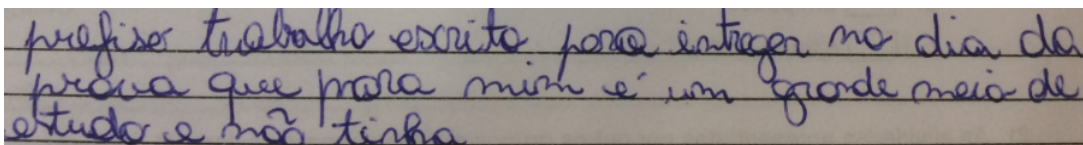 prefiser trabalho escrito para intreger no dia da
prova que para mim é um grande meio de
estudo e não tinha